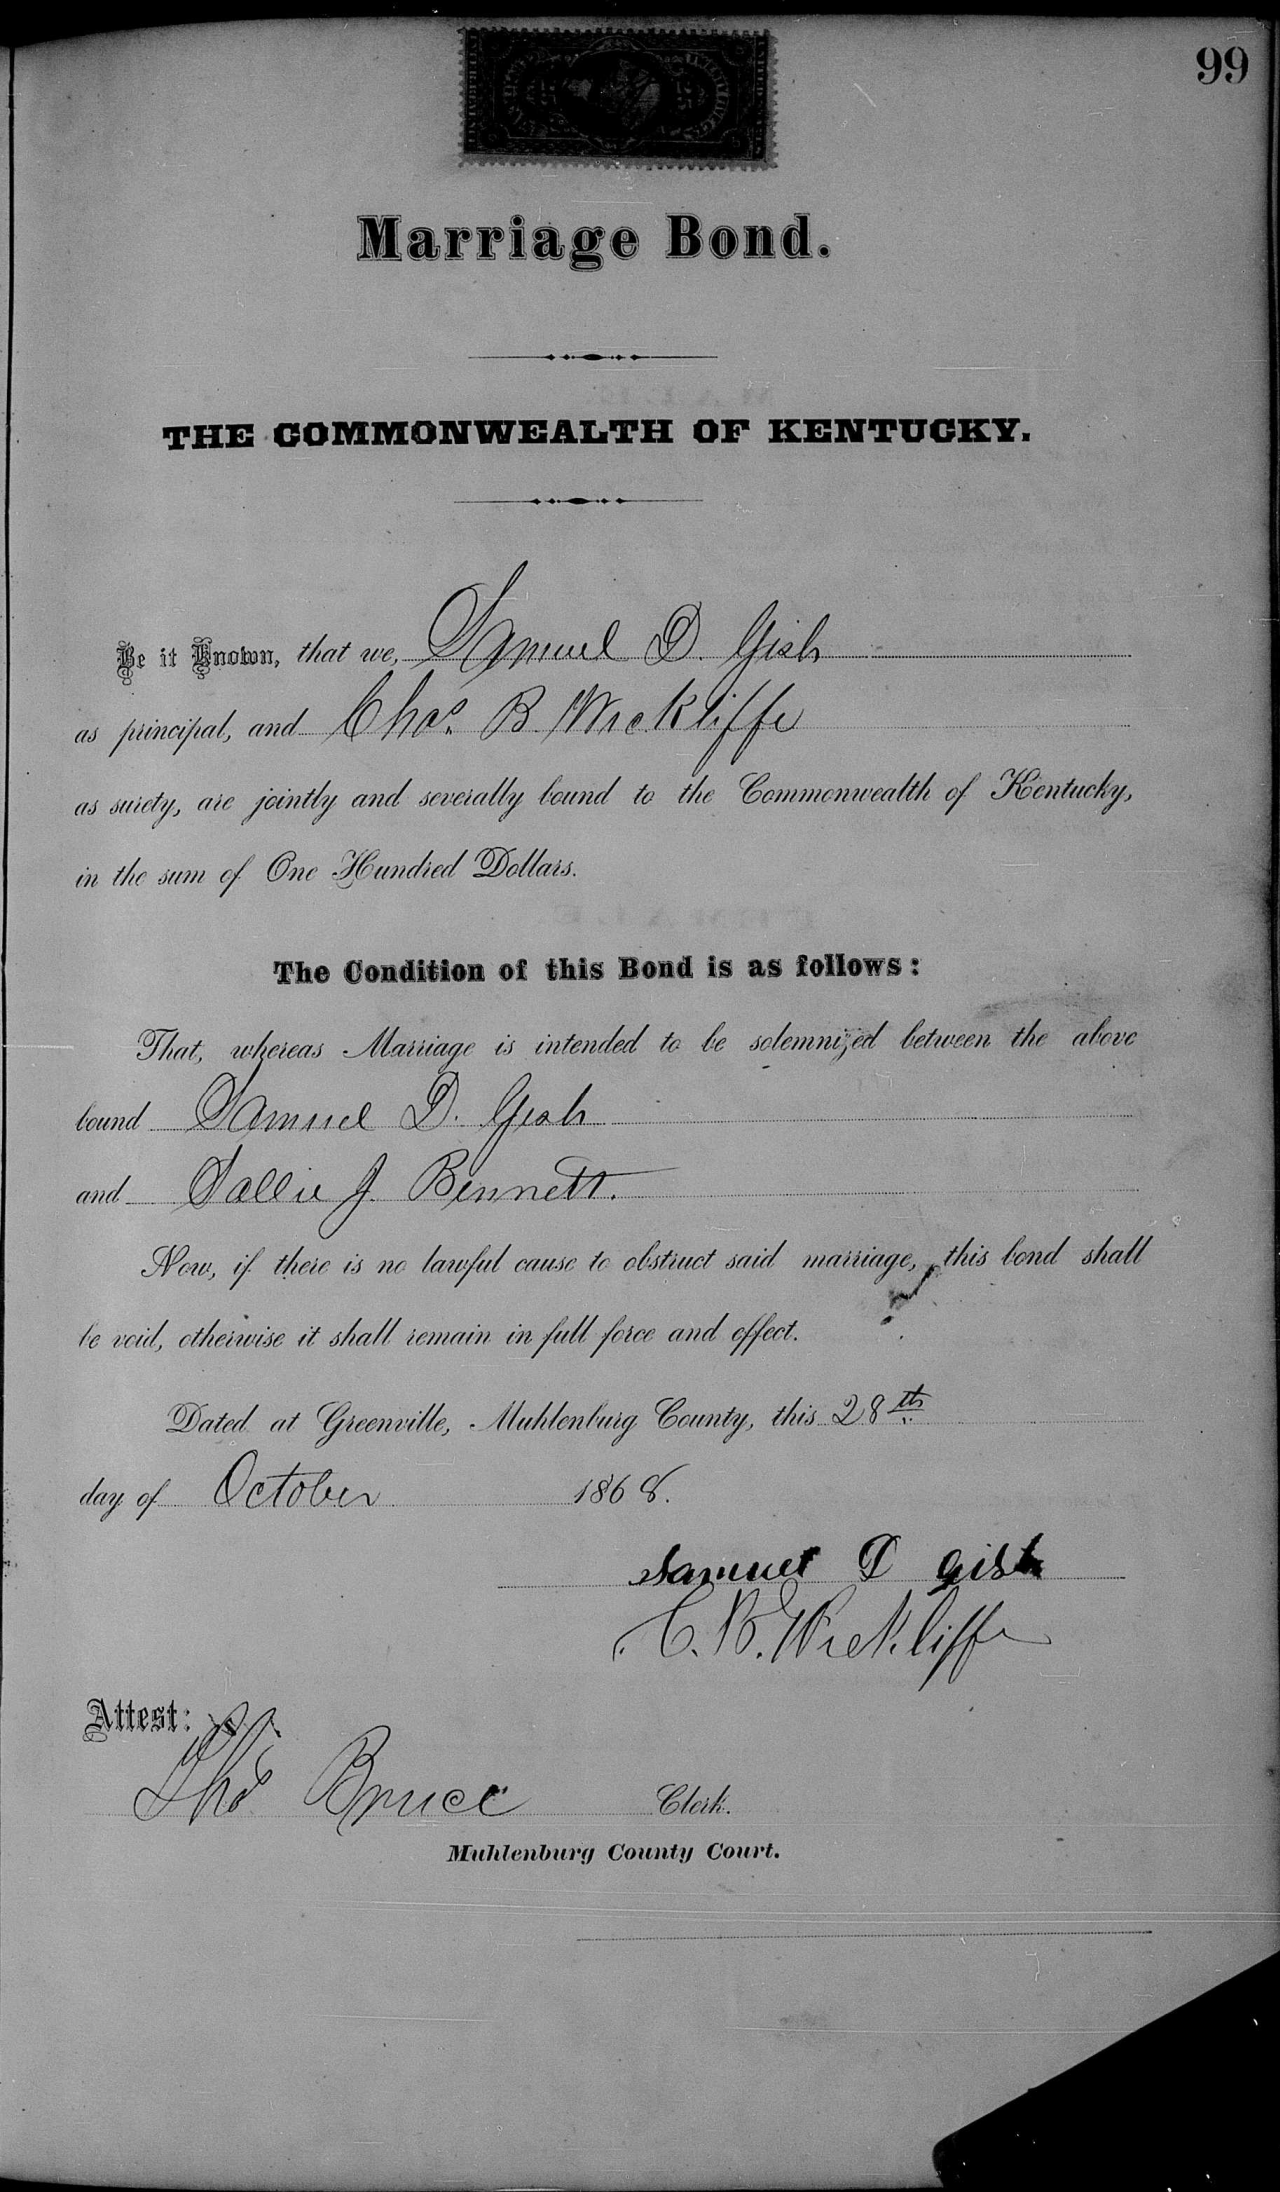 99
Marriage Bond.
THE COMMONWEALTH OF KENTUCKY.
Be it Known, that we, Samuel D. Gish
as principal, and Chas. B. Wickliffe
as surety, are jointly and severally bound to the Commonwealth of Kentucky,
in the sum of One Hundred Dollars.
The Condition of this Bond is as follows:
That, whereas Marriage is intended to be solemnized between the above
bound Samuel D. Gish
and Sallie J. Bennett.
Now, if there is no lawful cause to obstruct said marriage, this bond shall
be void, otherwise it shall remain in full force and effect.
Dated at Greenville, Muhlenburg County, this 28th
day of October 1868.
Samuel D Gish
C. B. Wickliffe
Attest:
Thos Bruce Clerk.
Muhlenburg County Court.